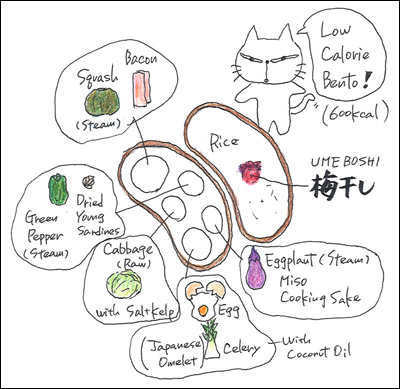 Low
Calorie
Bento!
(600kcal)
Bacon
Squash
(Steam)
Rice
UMEBOSHI
梅干し
Green
Pepper
(Steam)
Dried
Young
Sardines
Cabbage
(Raw)
with Saltkelp
Eggplant (Steam)
Miso
Cooking Sake
Egg
(Japanese
Omelet)
Celery
with
Coconut Oil